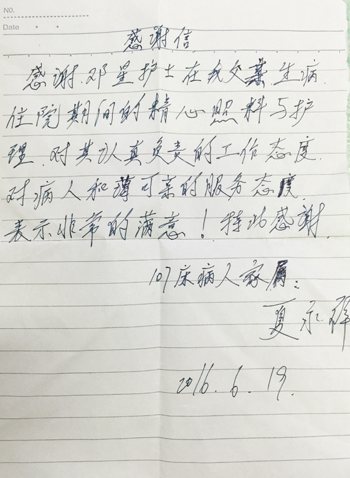 NO.
Date
感谢信
感谢邓星护士在我父亲生病
住院期间的精心照料与护
理.对其认真负责的工作态度.
对病人和蔼可亲的服务态度.
表示非常的满意！特此感谢.
107床病人家属:
夏永
2016.6.19.